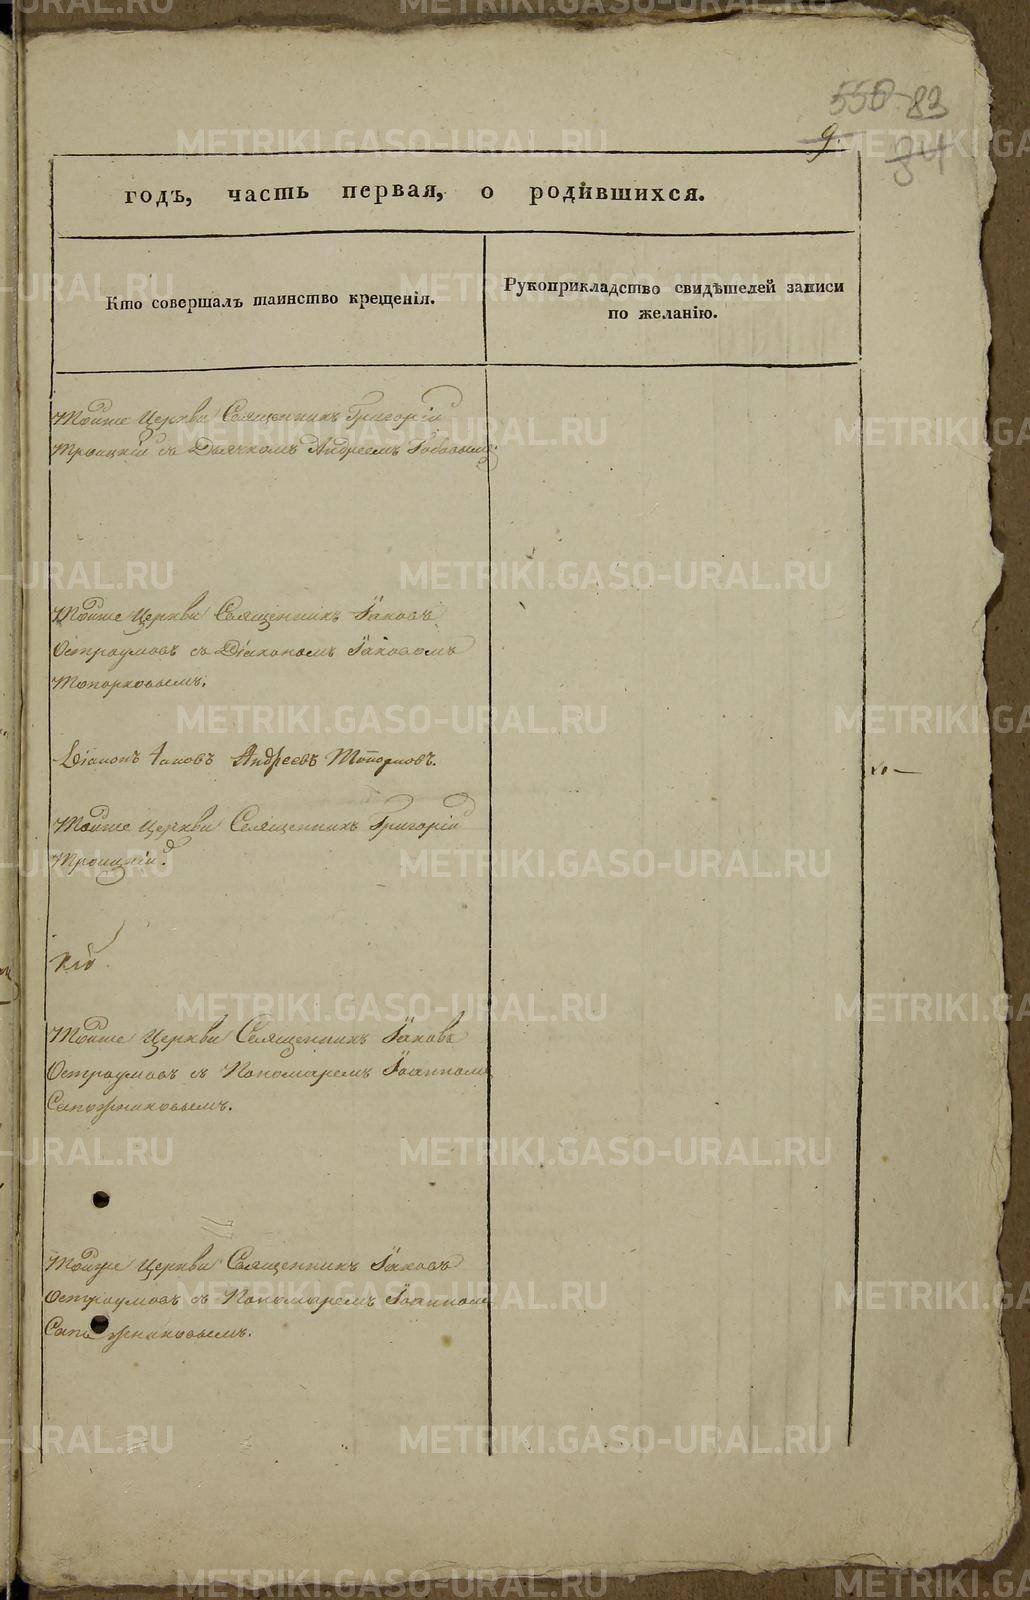 550 83
9. 84
годъ, часть первая, о родившихся.
Кто совершалъ таинство крещенія.
Рукоприкладство свидѣтелей записи
по желанію.
Тойже Церкви Священникъ Григорій
Троицкій съ Дьячкомъ Андреемъ
Тойже Церкви Священникъ Іаковъ
Остроумовъ съ Діакономъ Іаковомъ
Топорковымъ.
Діаконъ Іаковъ Андреевъ Топорковъ.
Тойже Церкви Священникъ Григорій
Троицкій.
Тойже Церкви Священникъ Іаковъ
Остроумовъ съ Пономаремъ Іоанномъ
Сапожниковымъ.
Тойже Церкви Священникъ Іаковъ
Остроумовъ съ Пономаремъ Іоанномъ
Сапожниковымъ.
METRIKI.GASO-URAL.RU